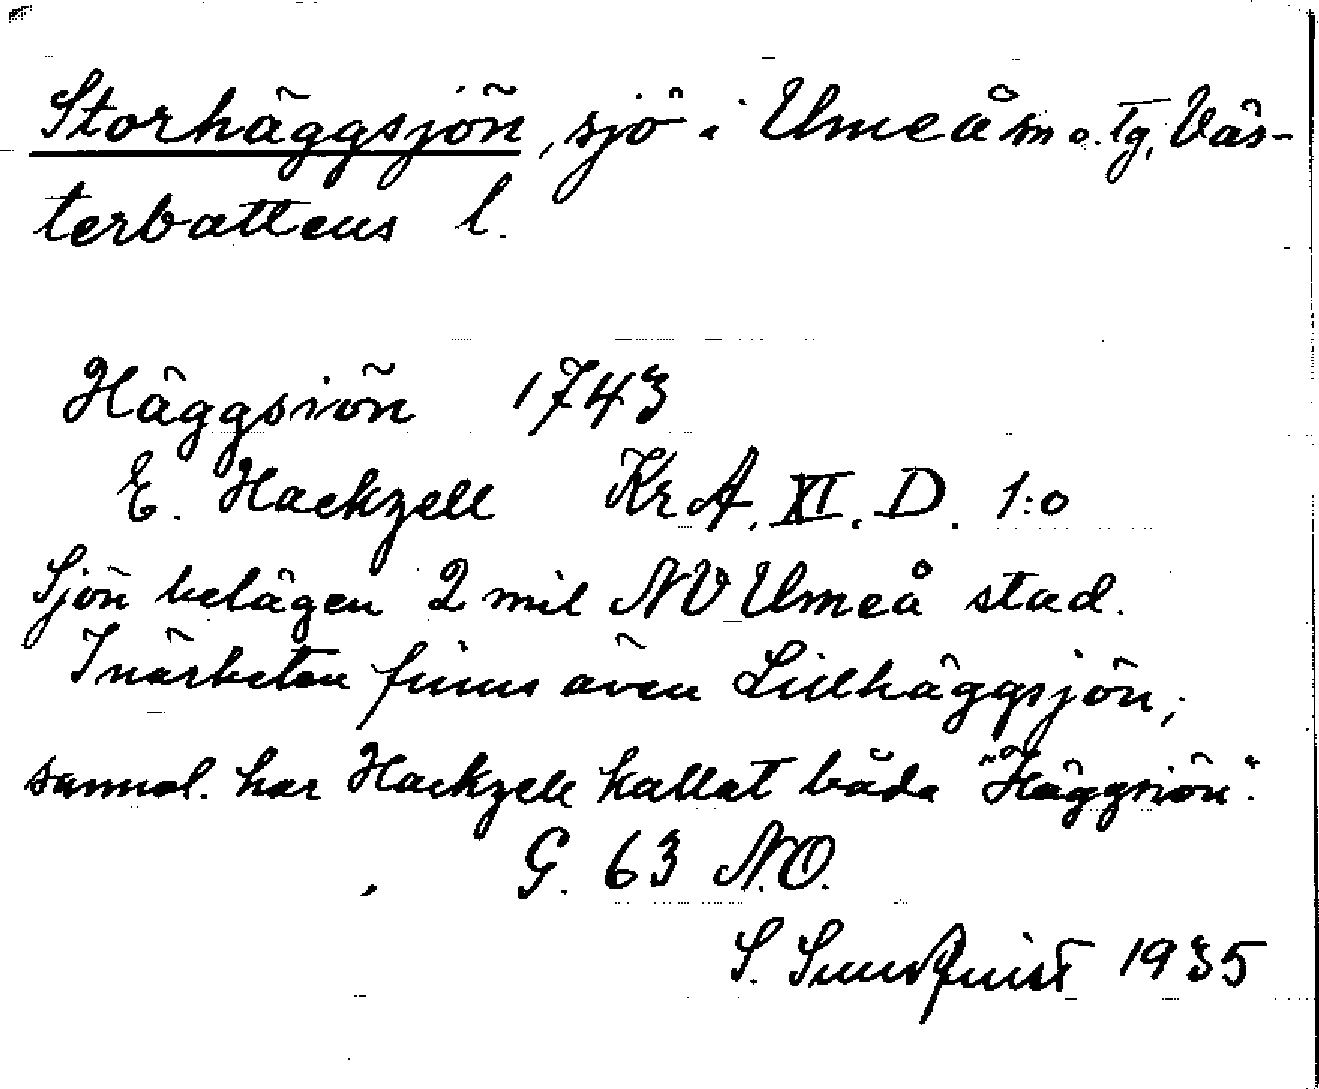 Storhäggsjön, sjö i Umeå sn o. tg, Väs-
terbottens l.
Häggsiön 1743
E. Hackzell Kr A. XI. D. 1:o
Sjön belägen 2 mil NV Umeå stad.
I närheten finns även Lillhäggsjön,
sannol. har Hackzell kallat båda "Häggsiön".
G. 63 N.O.
S. Sundquist 1935